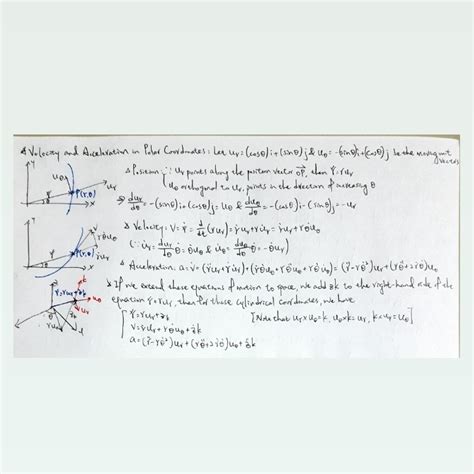 Velocity and Acceleration in Polar Coordinates: Let u_r = (cosθ)i + (sinθ)j & u_θ = -(sinθ)i + (cosθ)j be the moving unit vectors
Position: ∵ u_r points along the position vector OP, then r = r u_r
u_θ orthogonal to u_r, points in the direction of increasing θ
⇒ du_r/dθ = -(sinθ)i + (cosθ)j = u_θ & du_θ/dθ = -(cosθ)i - (sinθ)j = -u_r
Velocity: V = ṙ = d/dt (r u_r) = ṙu_r + r u̇_r = ṙu_r + rθ̇u_θ
(∵ u̇_r = du_r/dθ θ̇ = θ̇u_θ & u̇_θ = du_θ/dθ θ̇ = -θ̇u_r)
Acceleration: a = v̇ = (r̈u_r + ṙu̇_r) + (ṙθ̇u_θ + rθ̈u_θ + rθ̇u̇_θ) = (r̈ - rθ̇²)u_r + (rθ̈ + 2ṙθ̇)u_θ
If we extend these equations of motion to space, we add zk to the right-hand side of the
equation r = r u_r, then for these cylindrical coordinates, we have
r = r u_r + zk [Note that u_r × u_θ = k, u_θ × k = u_r, k × u_r = u_θ]
V = ṙu_r + rθ̇u_θ + żk
a = (r̈ - rθ̇²)u_r + (rθ̈ + 2ṙθ̇)u_θ + z̈k
Y
u_θ
u_r
r
P(r,θ)
θ
x
Y
V
rθ̇u_θ
P(r,θ)
ṙu_r
r
θ
x
k
u_θ
u_r
θ